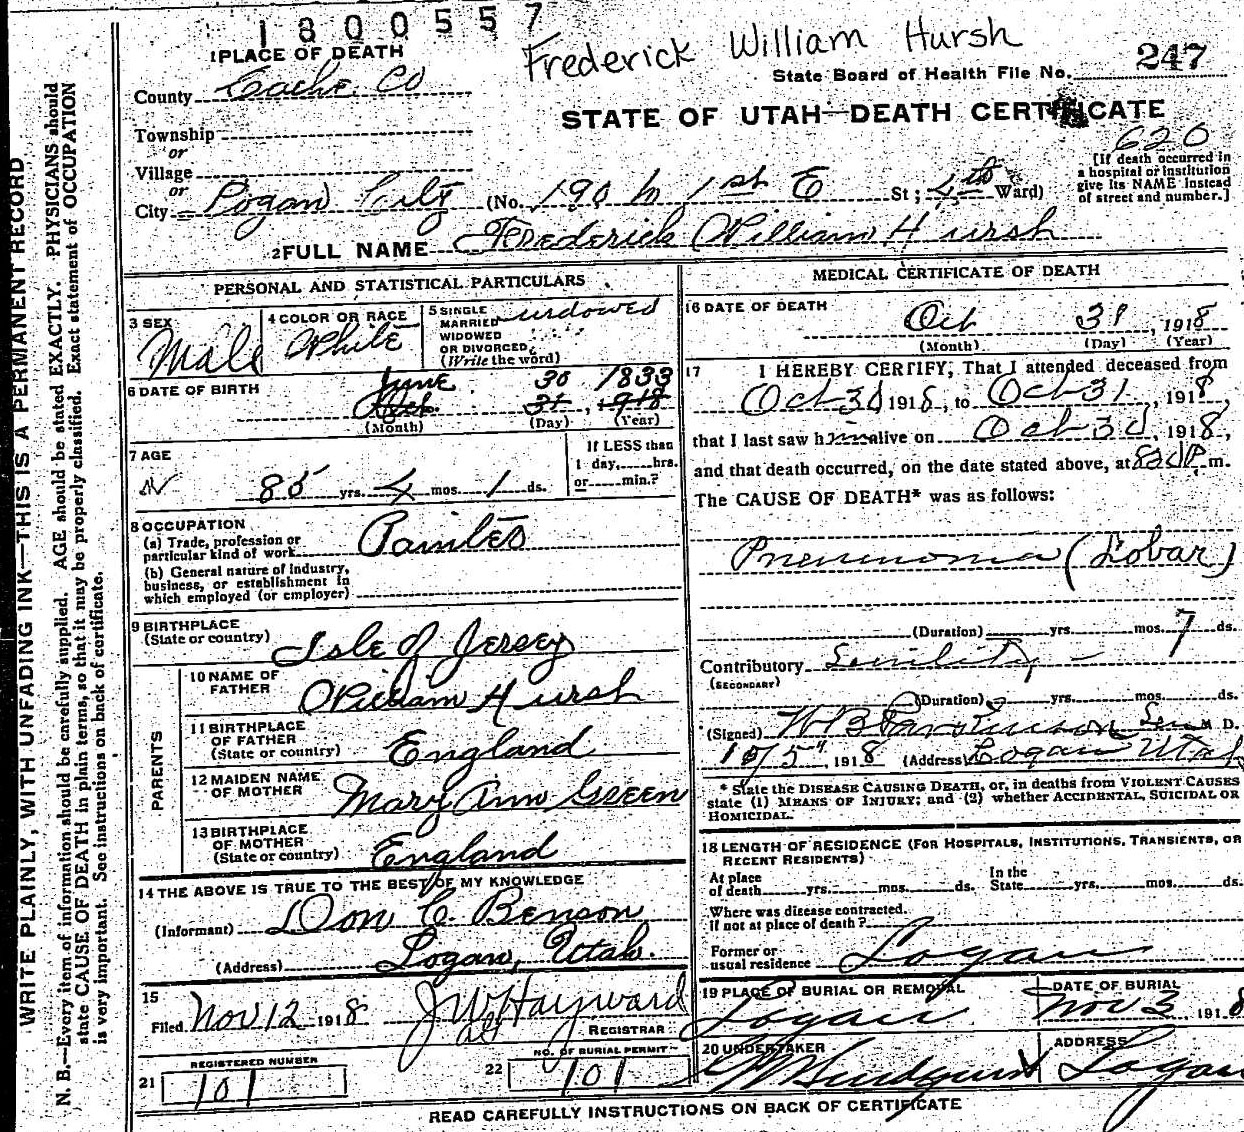 1800557
Frederick William Hursh
1 PLACE OF DEATH
State Board of Health File No. 247
County Cache Co
STATE OF UTAH—DEATH CERTIFICATE
Township
or
Village
or
City Logan City (No. 190 N 1st E St; 4th Ward)
620
[If death occurred in a hospital or institution give its NAME instead of street and number.]
2 FULL NAME Frederick William Hursh
PERSONAL AND STATISTICAL PARTICULARS
3 SEX Male
4 COLOR OR RACE White
5 SINGLE MARRIED WIDOWED OR DIVORCED (Write the word) widowed
6 DATE OF BIRTH June 30 1833
Oct. 31, 1918
(Month) (Day) (Year)
7 AGE 85 yrs. 4 mos. 1 ds.
If LESS than 1 day, hrs. or min.?
8 OCCUPATION
(a) Trade, profession or particular kind of work Painter
(b) General nature of industry, business, or establishment in which employed (or employer)
9 BIRTHPLACE (State or country) Isle of Jersey
PARENTS
10 NAME OF FATHER William Hursh
11 BIRTHPLACE OF FATHER (State or country) England
12 MAIDEN NAME OF MOTHER Mary Ann Green
13 BIRTHPLACE OF MOTHER (State or country) England
14 THE ABOVE IS TRUE TO THE BEST OF MY KNOWLEDGE
(Informant) Don C. Benson
(Address) Logan, Utah.
15
Filed Nov 12 1918 J W Hayward
REGISTRAR
REGISTERED NUMBER
21 101
NO. OF BURIAL PERMIT
22 101
MEDICAL CERTIFICATE OF DEATH
16 DATE OF DEATH Oct 31, 1918
(Month) (Day) (Year)
17 I HEREBY CERTIFY, That I attended deceased from
Oct 30 1918, to Oct 31, 1918,
that I last saw him alive on Oct 30, 1918,
and that death occurred, on the date stated above, at P. m.
The CAUSE OF DEATH* was as follows:
Pneumonia (Lobar)
(Duration) yrs. mos. 7 ds.
Contributory Senility
(SECONDARY)
(Duration) yrs. mos. ds.
(Signed) W B Parkinson Sen M D.
1918 (Address) Logan Utah
* State the DISEASE CAUSING DEATH, or, in deaths from VIOLENT CAUSES
state (1) MEANS OF INJURY; and (2) whether ACCIDENTAL, SUICIDAL OR
HOMICIDAL.
18 LENGTH OF RESIDENCE (FOR HOSPITALS, INSTITUTIONS, TRANSIENTS, OR
RECENT RESIDENTS)
At place of death yrs. mos. ds. In the State yrs. mos. ds.
Where was disease contracted, if not at place of death?
Former or usual residence Logan
19 PLACE OF BURIAL OR REMOVAL Logan
DATE OF BURIAL Nov 3 1918
20 UNDERTAKER Lundquist
ADDRESS Logan
READ CAREFULLY INSTRUCTIONS ON BACK OF CERTIFICATE
WRITE PLAINLY, WITH UNFADING INK—THIS IS A PERMANENT RECORD
N. B.—Every item of information should be carefully supplied. AGE should be stated EXACTLY. PHYSICIANS should
state CAUSE OF DEATH in plain terms, so that it may be properly classified. Exact statement of OCCUPATION
is very important. See instructions on back of certificate.